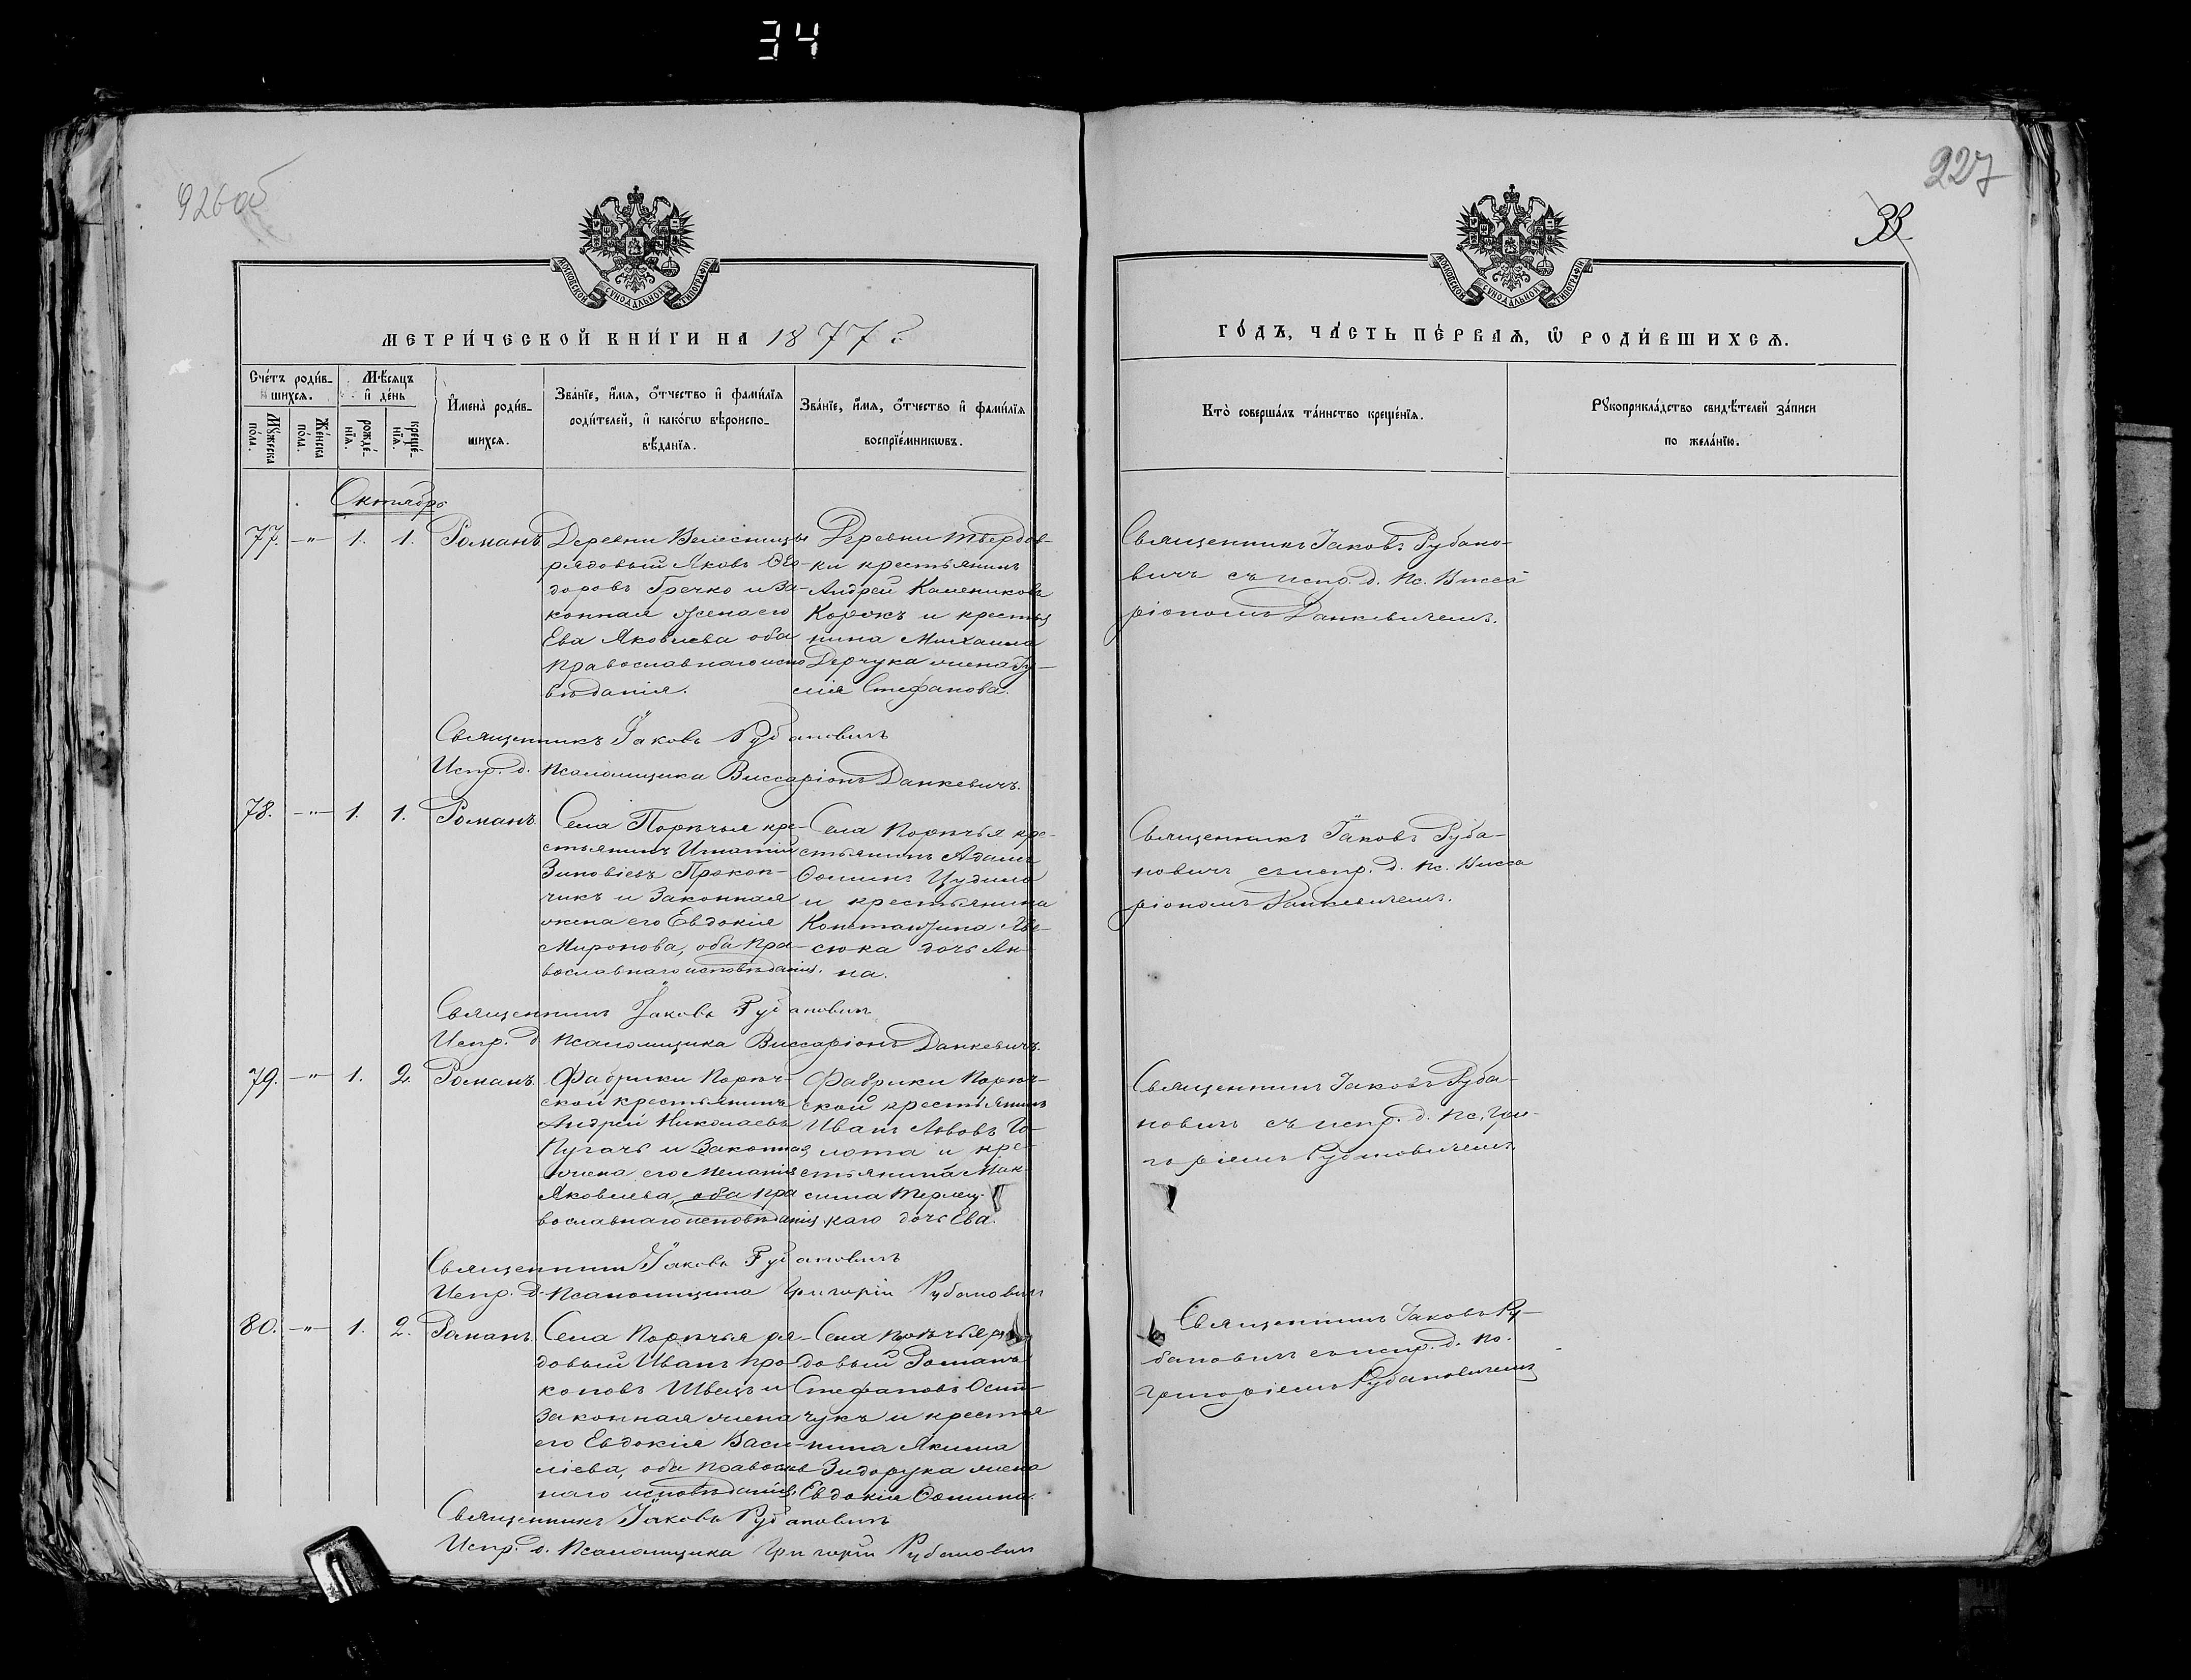 34
926об
227
МОСКОВСКОЙ СѴНОДАЛЬНОЙ ТИПОГРАФІИ
МОСКОВСКОЙ СѴНОДАЛЬНОЙ ТИПОГРАФІИ
МЕТРИ́ЧЕСКОЙ КНИ́ГИ НА 1877 г.
ГО́ДЪ, ЧА́СТЬ ПЕ́РВАѦ, Ѡ҆ РОДИ́ВШИХСѦ.
Сче́тъ роди́в-
шихсѧ.
Мꙋ́жеска по́ла.
Же́нска по́ла.
Мѣ́сѧцъ
и҆ де́нь
рожде́-
нїѧ.
креще́-
нїѧ.
И҆мена̀ роди́в-
шихсѧ.
Зва́нїе, и҆́мѧ, ѻ҆́тчество и҆ фами́лїѧ
роди́телей, и҆ како́гѡ вѣроиспо-
вѣ́данїѧ.
Зва́нїе, и҆́мѧ, ѻ҆́тчество и҆ фами́лїѧ
воспрїе́мникѡвъ.
Кто̀ соверша́лъ та́инство креще́нїѧ.
Рꙋкоприкла́дство свидѣ́телей за́писи
по жела́нїю.
Октябрь
77. -"- 1. 1. Романъ
Деревни Велесницы
рядовый Яковъ Ѳео-
доровъ Гречко и за-
конная жена его
Ева Яковлева оба
православнаго испо
вѣданія.
Деревни Твердов-
ки крестьянинъ
Андрей
и крестья
нина Михаила
Дерчука жена Іу-
лія Стефанова.
Священникъ Іаковъ Рубано-
вичъ съ испр. д. пс. Висса
ріономъ Данкевичемъ.
Священникъ Іаковъ Рубановичъ
Испр. д. Псаломщика Виссаріонъ Данкевичъ.
78. -"- 1. 1. Романъ
Села Порѣчья кре-
стьянинъ Игнатій
Зиновіевъ Прокоп-
чикъ и законная
жена его Евдокія
Миронова, оба пра-
вославнаго исповѣданія.
Села Порѣчья кре-
стьянинъ Адамъ
Ѳоминъ
и крестьянина
Константина
сюка дочь Ан-
на.
Священникъ Іаковъ Руба-
новичъ съ испр. д. пс. Висса
ріономъ Данкевичемъ.
Священникъ Іаковъ Рубановичъ
Испр. д. Псаломщика Виссаріонъ Данкевичъ.
79. -"- 1. 2. Романъ
Фабрики Порѣч-
ской крестьянинъ
Андрей Николаевъ
Пугачъ и законная
жена его Меланія
Яковлева, оба пра
вославнаго исповѣданія
Фабрики Порѣч-
ской крестьянинъ
Иванъ Львовъ Го-
лота и кре-
стьянина Мак-
сима Терлец-
каго дочь Ева.
Священникъ Іаковъ Руба-
новичъ съ испр. д. пс. Гри-
горіемъ Рубановичемъ.
Священникъ Іаковъ Рубановичъ
Испр. д. Псаломщика Григорій Рубановичъ
80. -"- 1. 2. Романъ
Села Порѣчья ря-
довый Иванъ Про-
коповъ Швецъ и
законная жена
его Евдокія Васи-
ліева, оба православ
наго исповѣданія,
Села Порѣчья ря
довый Романъ
Стефановъ Осип-
чукъ и крестья
нина Якима
Зидорука жена
Евдокія Ѳомина.
Священникъ Іаковъ Ру-
бановичъ съ испр. д. пс.
Григоріемъ Рубановичемъ
Священникъ Іаковъ Рубановичъ
Испр. д. Псаломщика Григорій Рубановичъ